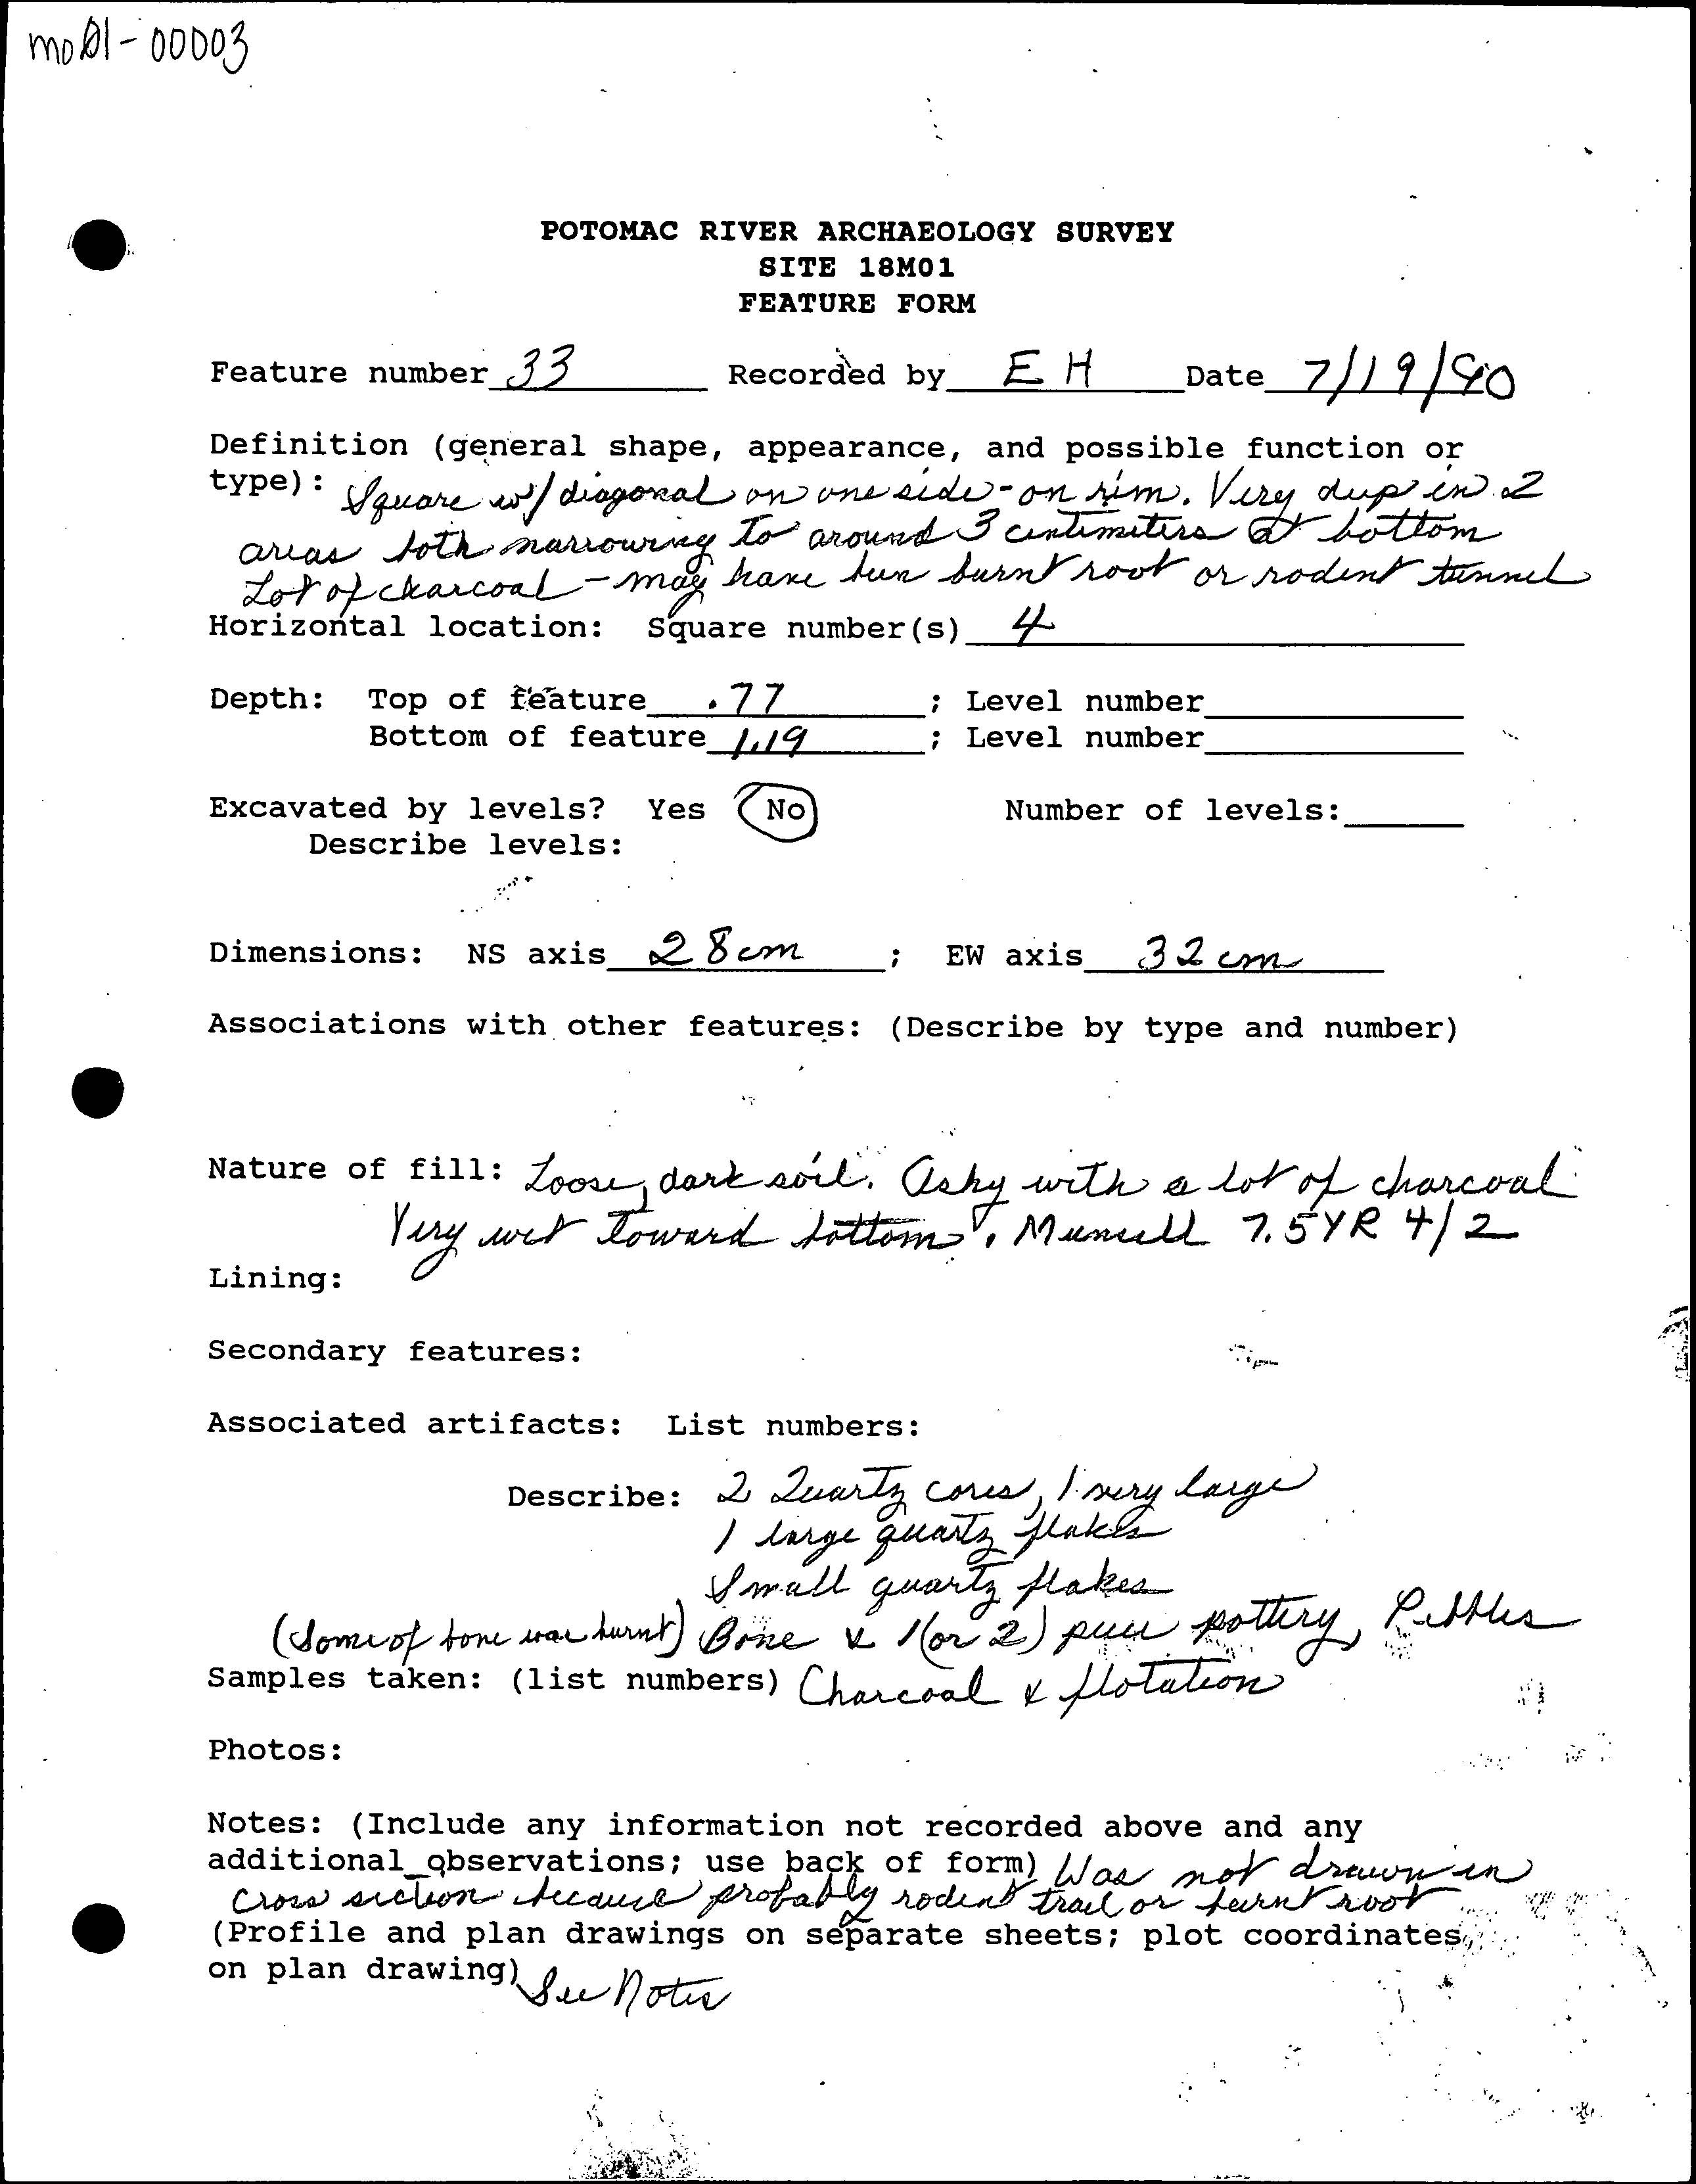 mo01-00003
POTOMAC RIVER ARCHAEOLOGY SURVEY
SITE 18MO1
FEATURE FORM
Feature number 33 Recorded by E H Date 7/19/90
Definition (general shape, appearance, and possible function or
type): Square w/ diagonal on one side - on rim. Very deep in 2
areas both narrowing to around 3 centimeters at bottom
Lot of charcoal - may have been burnt root or rodent tunnel
Horizontal location: Square number(s) 4
Depth: Top of feature .77 ; Level number
Bottom of feature 1.19 ; Level number
Excavated by levels? Yes No Number of levels:
Describe levels:
Dimensions: NS axis 28cm ; EW axis 32cm
Associations with other features: (Describe by type and number)
Nature of fill: Loose, dark soil. Ashy with a lot of charcoal
Very wet toward bottom. Munsell 7.5YR 4/2
Lining:
Secondary features:
Associated artifacts: List numbers:
Describe: 2 Quartz cores, 1 very large
1 large quartz flakes
Small quartz flakes
(Some of bone was burnt) Bone & 1 (or 2) piece pottery, Pebbles
Samples taken: (list numbers) Charcoal & flotation
Photos:
Notes: (Include any information not recorded above and any
additional observations; use back of form) Was not drawn in
cross section because probably rodent trail or burnt root
(Profile and plan drawings on separate sheets; plot coordinates
on plan drawing) See Notes